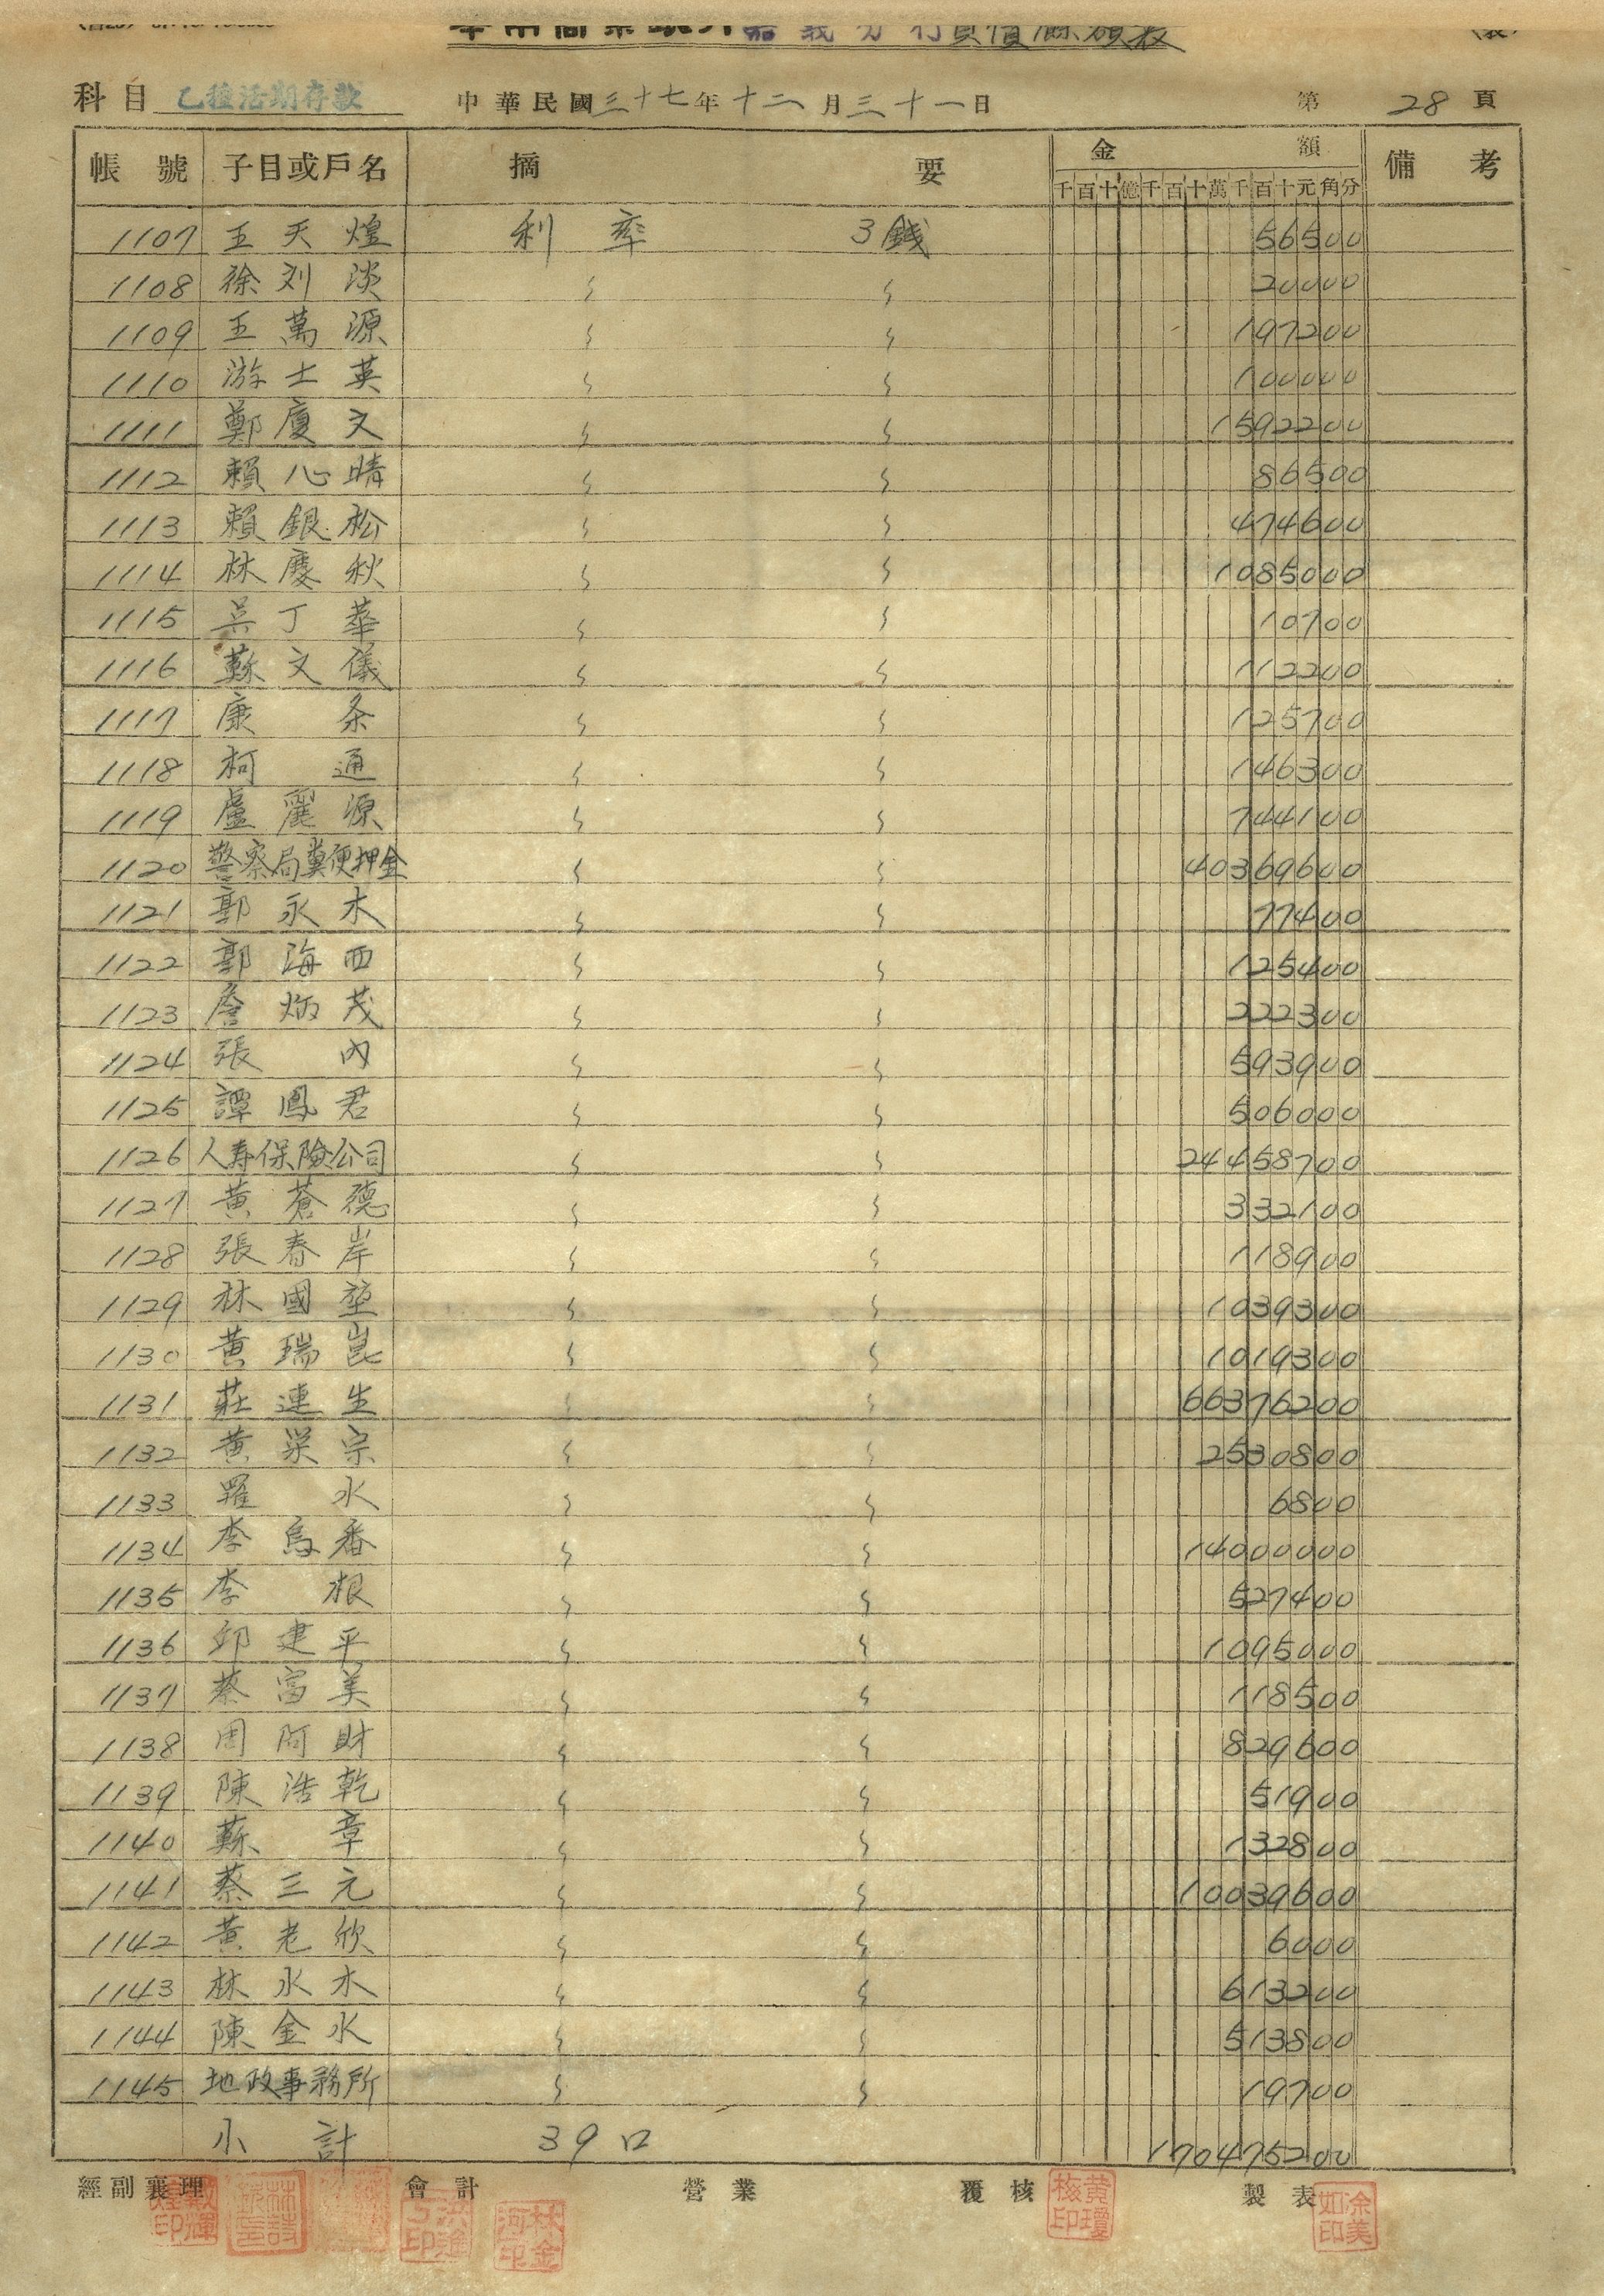 華南商業銀行嘉義分行負債餘額表
科目 乙種活期存款 中華民國三十七年十二月三十一日 第28頁
帳號 子目或戶名 摘要 金額 備考
千百十億千百十萬千百十元角分
1107 王天煌 利率 3錢 56500
1108 徐刘淡 〃 〃 20000
1109 王萬源 〃 〃 197200
1110 游士英 〃 〃 100000
1111 鄭廈文 〃 〃 1592200
1112 賴心晴 〃 〃 86500
1113 賴銀松 〃 〃 474600
1114 林慶秋 〃 〃 1085000
1115 吳丁華 〃 〃 10700
1116 蘇文儀 〃 〃 112200
1117 康条 〃 〃 125700
1118 柯通 〃 〃 146300
1119 盧麗源 〃 〃 744100
1120 警察局糞便押金 〃 〃 40369600
1121 郭永木 〃 〃 77400
1122 郭海西 〃 〃 125400
1123 詹炳茂 〃 〃 222300
1124 張內 〃 〃 593900
1125 譚鳳君 〃 〃 506000
1126 人寿保險公司 〃 〃 24458700
1127 黃蒼德 〃 〃 332100
1128 張春岸 〃 〃 118900
1129 林國堃 〃 〃 1039300
1130 黃瑞崑 〃 〃 1019300
1131 莊連生 〃 〃 66376200
1132 黃梁宗 〃 〃 2530800
1133 羅水 〃 〃 6800
1134 李烏番 〃 〃 14000000
1135 李根 〃 〃 527400
1136 邱建平 〃 〃 1095000
1137 蔡富美 〃 〃 118500
1138 周阿財 〃 〃 829600
1139 陳浩乾 〃 〃 51900
1140 蘇章 〃 〃 132800
1141 蔡三元 〃 〃 10039600
1142 黃老欣 〃 〃 6000
1143 林永木 〃 〃 613200
1144 陳金水 〃 〃 513800
1145 地政事務所 〃 〃 19700
小計 39口 170475200
經副襄理 會計 營業 覆核 製表
林金河印 黃瓊核印 余美如印